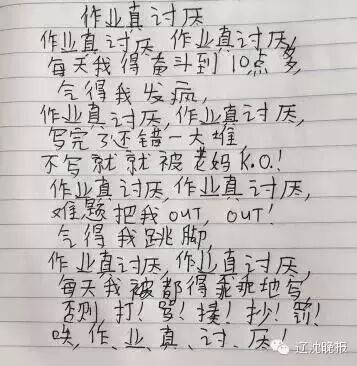 作业真讨厌
作业真讨厌,作业真讨厌,
每天我得奋斗到10点多,
气得我发疯,
作业真讨厌,作业真讨厌,
写完了还错一大堆,
不写就就被老妈K.O.!
作业真讨厌,作业真讨厌,
难题把我OUT,OUT!
气得我跳脚,
作业真讨厌,作业真讨厌,
每天我被都得乖乖地写,
否则,打!骂!揍!抄!罚!
唉,作、业、真、讨、厌!
辽沈晚报